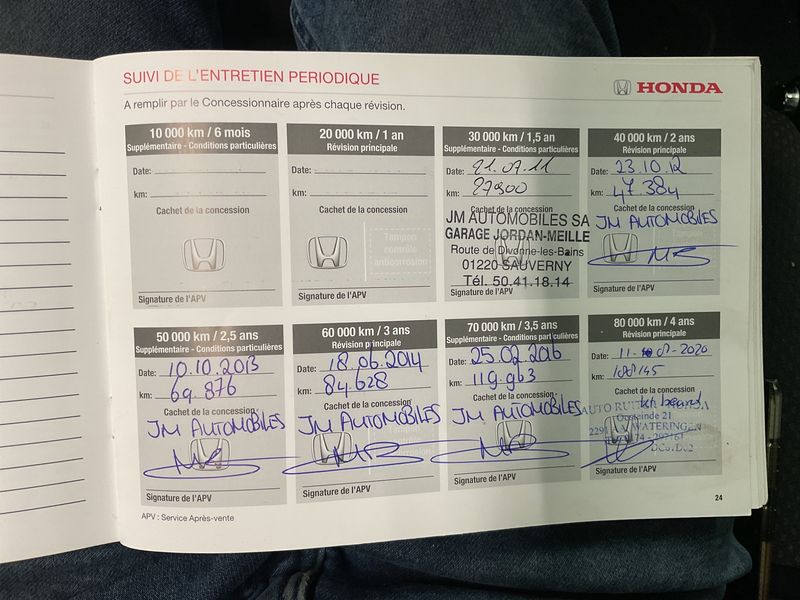 SUIVI DE L'ENTRETIEN PERIODIQUE
HONDA
A remplir par le Concessionnaire après chaque révision.
10 000 km / 6 mois
Supplémentaire - Conditions particulières
Date:
km:
Cachet de la concession
Signature de l'APV
20 000 km / 1 an
Révision principale
Date:
km:
Cachet de la concession
Tampon
contrôle
anticorrosion
Signature de l'APV
30 000 km / 1,5 an
Supplémentaire - Conditions particulières
Date: 21.07.11
km: 27900
Cachet de la concession
JM AUTOMOBILES SA
GARAGE JORDAN-MEILLE
Route de Divonne-les-Bains
01220 SAUVERNY
Tél. 50.41.18.14
Signature de l'APV
40 000 km / 2 ans
Révision principale
Date: 23.10.12
km: 47.384
Cachet de la concession
JM AUTOMOBILES
Signature de l'APV
50 000 km / 2,5 ans
Supplémentaire - Conditions particulières
Date: 10.10.2013
km: 69.876
Cachet de la concession
JM AUTOMOBILES
Signature de l'APV
60 000 km / 3 ans
Révision principale
Date: 18.06.2014
km: 84.628
Cachet de la concession
JM AUTOMOBILES
Signature de l'APV
70 000 km / 3,5 ans
Supplémentaire - Conditions particulières
Date: 25.02.2016
km: 119.963
Cachet de la concession
JM AUTOMOBILES
Signature de l'APV
80 000 km / 4 ans
Révision principale
Date: 11- 08-2020
km:
Cachet de la concession
AUTO HONDA
Oosteinde 21
WATERINGEN
Signature de l'APV
APV : Service Après-vente
24